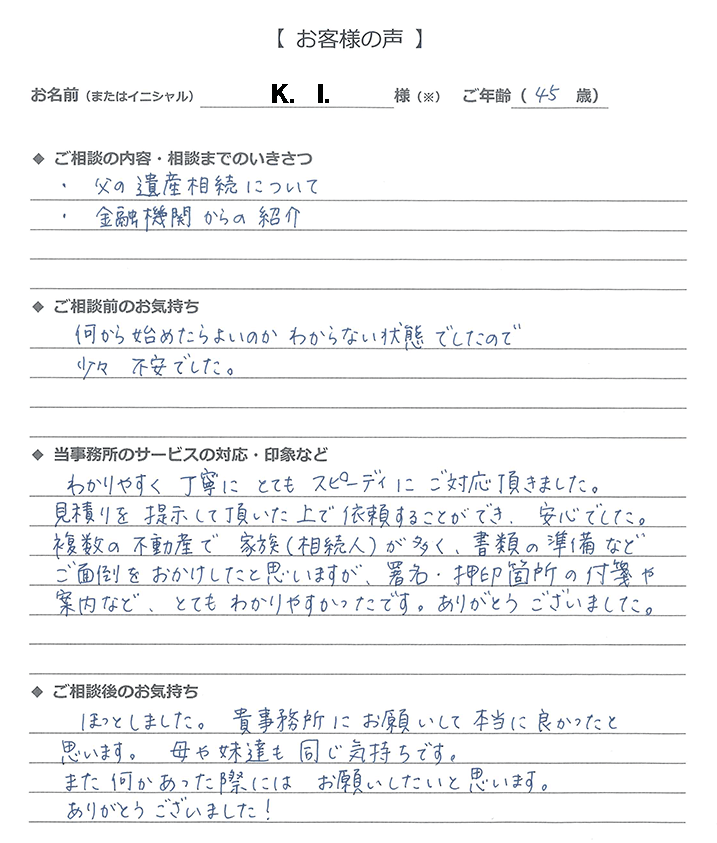 【 お客様の声 】
お名前（またはイニシャル） K. I. 様（※） ご年齢（ 45 歳）
◆ ご相談の内容・相談までのいきさつ
・ 父の遺産相続について
・ 金融機関からの紹介
◆ ご相談前のお気持ち
何から始めたらよいのか わからない状態でしたので
少々 不安でした。
◆ 当事務所のサービスの対応・印象など
わかりやすく 丁寧に とても スピーディに ご対応頂きました。
見積りを 提示して頂いた上で依頼することができ、安心でした。
複数の不動産で 家族(相続人)が多く、書類の準備など
ご面倒をおかけしたと思いますが、署名・押印箇所の付箋や
案内など、とてもわかりやすかったです。ありがとうございました。
◆ ご相談後のお気持ち
ほっとしました。 貴事務所にお願いして本当に良かったと
思います。 母や妹達も同じ気持ちです。
また何かあった際には お願いしたいと思います。
ありがとうございました！